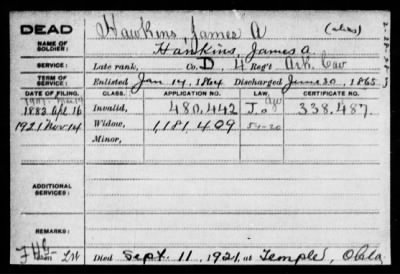 DEAD
Hawkins, James A
(alias)
NAME OF SOLDIER:
Hankins, James A.
SERVICE:
Late rank, Co. D, 4 Reg't Ark. Cav
TERM OF SERVICE:
Enlisted Jan 14, 1864 Discharged June 30, 1865
DATE OF FILING. CLASS. APPLICATION NO. LAW. CERTIFICATE NO.
1883 Apl 16 Invalid, 480,442 338.487
1921 Nov 14 Widow, 1,181,409
Minor,
ADDITIONAL SERVICES:
REMARKS:
Died Sept. 11, 1921, at Temple, Okla.